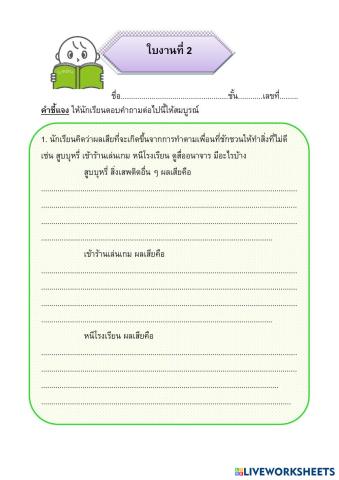 ใบงานที่ 2
ชื่อ............................................................ชั้น..............เลขที่..........
คำชี้แจง ให้นักเรียนตอบคำถามต่อไปนี้ให้สมบูรณ์
1. นักเรียนคิดว่าผลเสียที่จะเกิดขึ้นจากการทำตามเพื่อนที่ชักชวนให้ทำสิ่งที่ไม่ดี
เช่น สูบบุหรี่ เข้าร้านเล่นเกม หนีโรงเรียน ดูสื่ออนาจาร มีอะไรบ้าง
สูบบุหรี่ สิ่งเสพติดอื่น ๆ ผลเสียคือ
เข้าร้านเล่นเกม ผลเสียคือ
หนีโรงเรียน ผลเสียคือ
LIVEWORKSHEETS